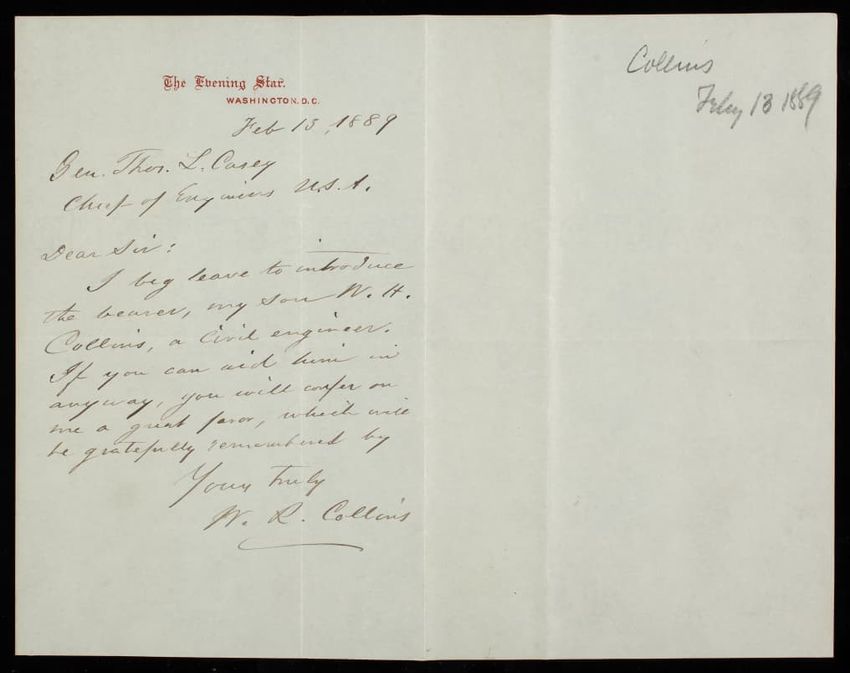 The Evening Star.
WASHINGTON, D.C.
Feb 13, 1889
Gen. Thos. L. Casey
Chief of Engineers U.S.A.
Dear Sir:
I beg leave to introduce
the bearer, my son W. H.
Collins, a Civil engineer.
If you can aid him in
anyway, you will confer on
me a great favor, which will
be gratefully remembered by
Yours truly
W. R. Collins
Collins
Feby 13 1889